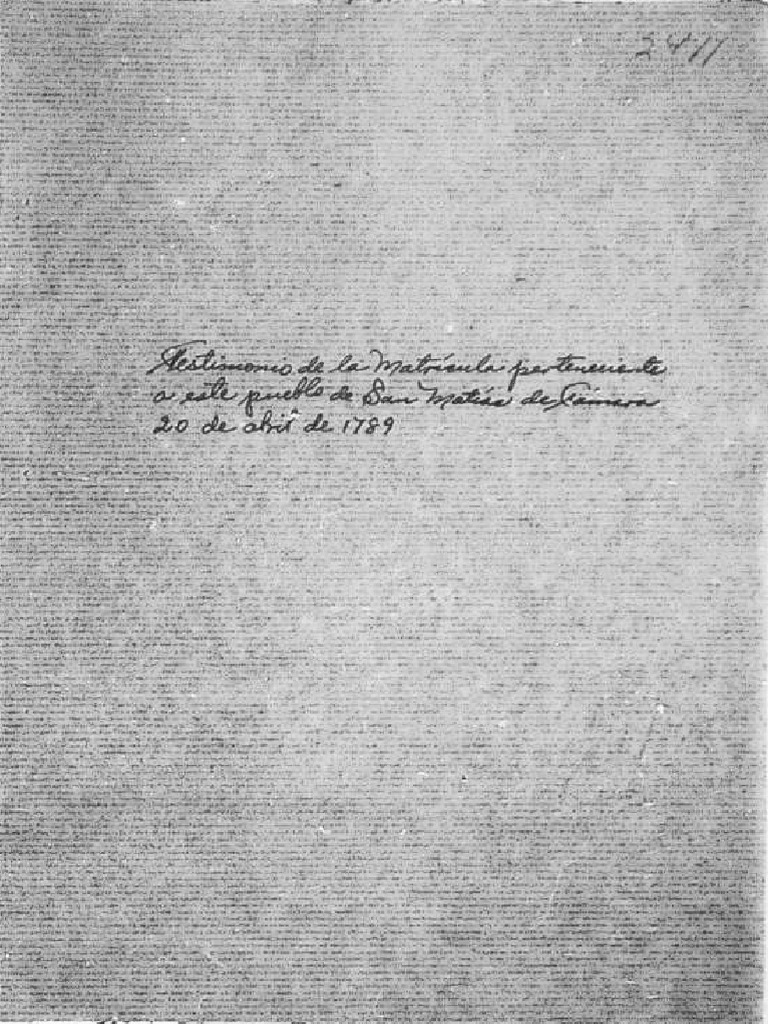 2411
Testimonio de la Matrícula perteneciente
a este pueblo de San Matías de Támara
20 de abril de 1789